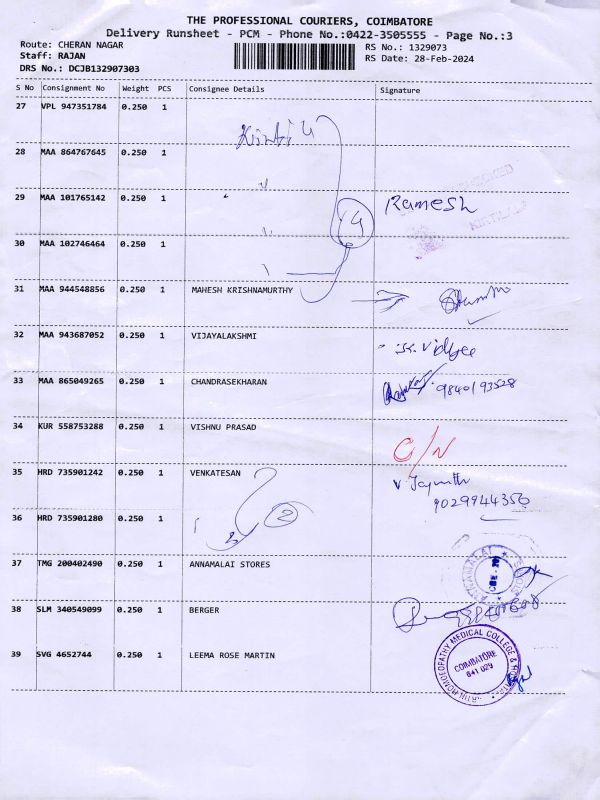 THE PROFESSIONAL COURIERS, COIMBATORE
Delivery Runsheet - PCM - Phone No.:0422-3505555 - Page No.:3
Route: CHERAN NAGAR
RS No.: 1329073
Staff: RAJAN
RS Date: 28-Feb-2024
DRS No.: DCJB132907303
S No Consignment No Weight PCS Consignee Details Signature
27 VPL 947351784 0.250 1
28 MAA 864767645 0.250 1
29 MAA 101765142 0.250 1 Ramesh
4
30 MAA 102746464 0.250 1
31 MAA 944548856 0.250 1 MAHESH KRISHNAMURTHY
32 MAA 943687052 0.250 1 VIJAYALAKSHMI
33 MAA 865049265 0.250 1 CHANDRASEKHARAN 9840193528
34 KUR 558753288 0.250 1 VISHNU PRASAD C/N
35 HRD 735901242 0.250 1 VENKATESAN
9029944350
36 HRD 735901280 0.250 1 2
37 TMG 200402490 0.250 1 ANNAMALAI STORES
38 SLM 340549099 0.250 1 BERGER
39 SVG 4652744 0.250 1 LEEMA ROSE MARTIN
HOMOEOPATHY MEDICAL COLLEGE &
COIMBATORE
641 029